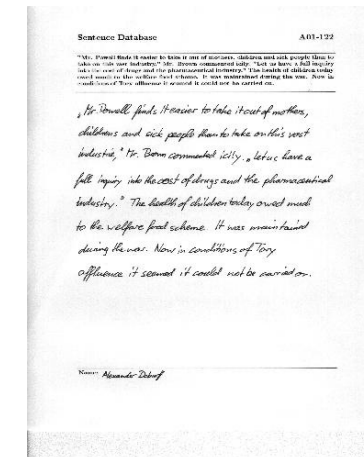 Sentence Database A01-122
"Mr. Powell finds it easier to take it out of mothers, children and sick people than to
take on this vast industry," Mr. Brown commented icily. "Let us have a full inquiry
into the cost of drugs and the pharmaceutical industry." The health of children today
owed much to the welfare food scheme. It was maintained during the war. Now in
conditions of Tory affluence it seemed it could not be carried on.
„Mr. Powell finds it easier to take it out of mothers,
childrens and sick people than to take on this vast
industrie," Mr. Brown commented icily. „Let us have a
full inquiry into the cost of drugs and the pharmaceutical
industry." The health of children today owed much
to the welfare food scheme. It was maintained
during the war. Now in conditions of Tory
affluence it seemed it could not be carried on.
Name: Alexander